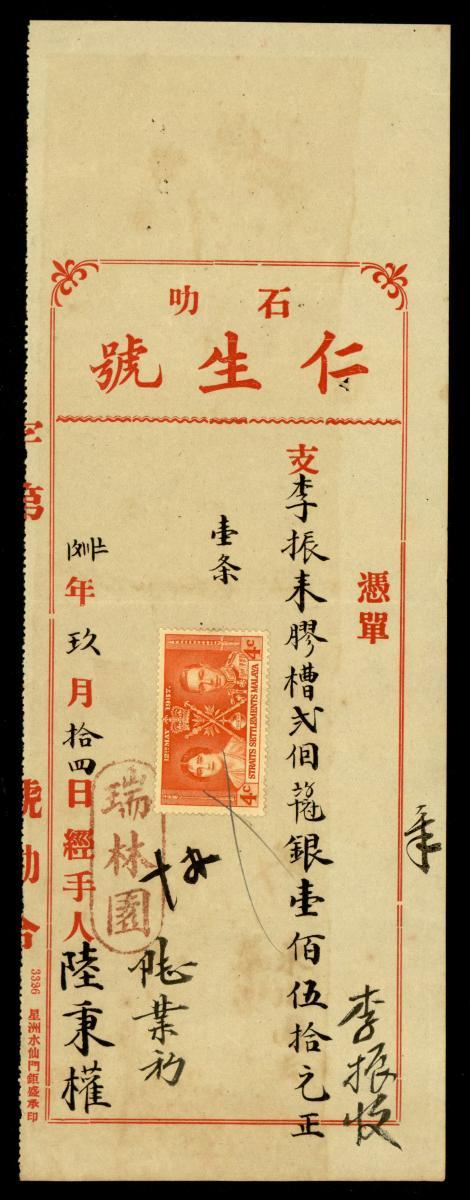 石叻
仁生號
憑單
支李振来膠槽弍個
銀壹佰伍拾元正
壹条
李振收
年玖月拾四日經手人陸秉權
瑞林園
字第
號勷合
12TH MAY 1937.
STRAITS SETTLEMENTS MALAYA
4c
4c
3336 星洲水仙門鉅盛承印